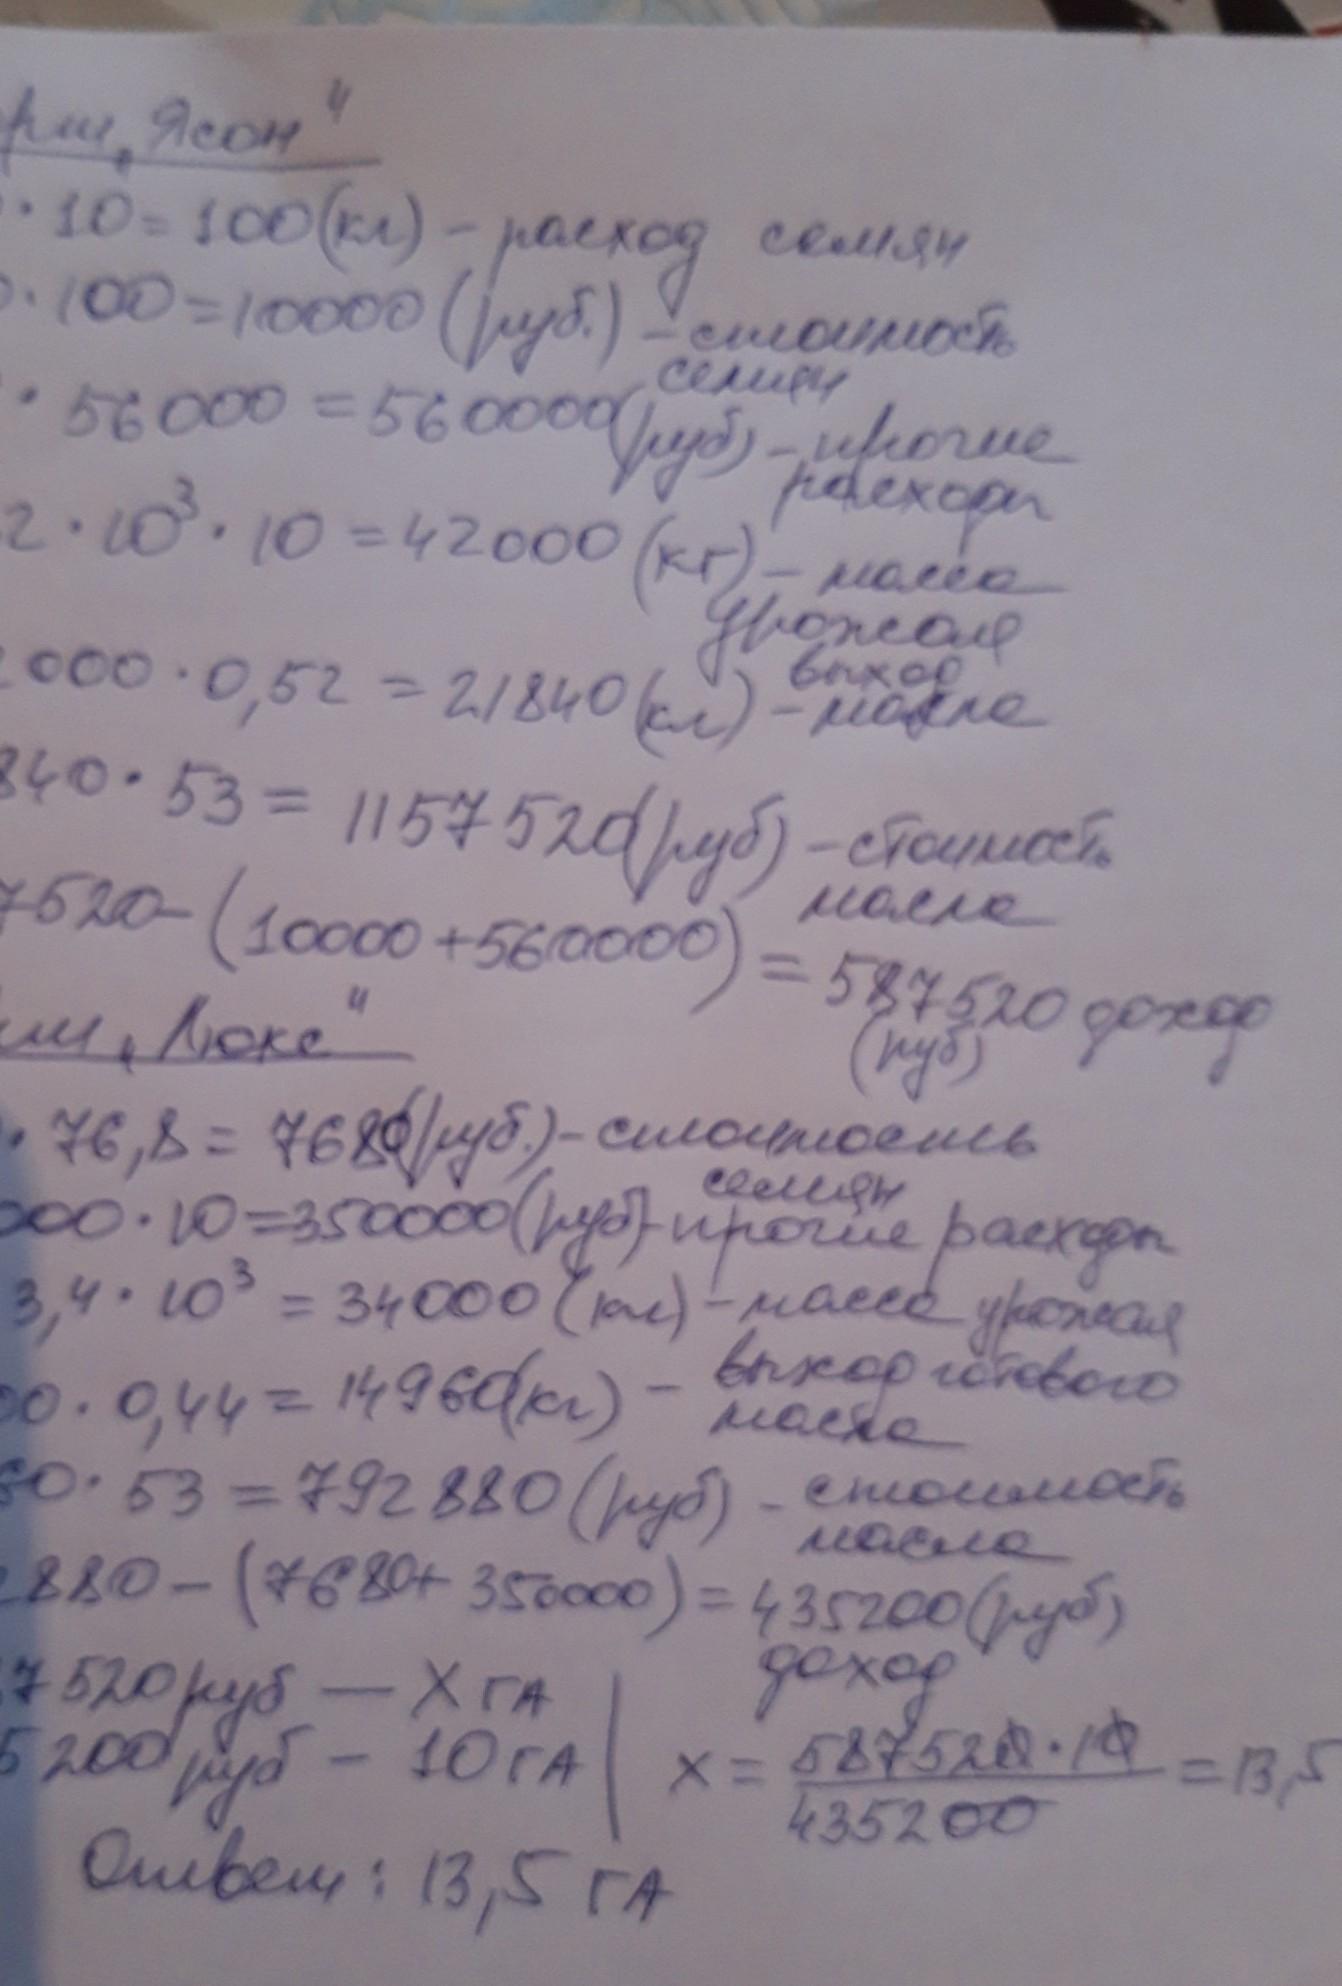 рми „Ясон"
· 10 = 100 (кг) – расход семян
0 · 100 = 10000 (руб.) – стоимость
семян
· 56000 = 560000 (руб) – прочие
расходы
2 · 10³ · 10 = 42000 (кг) – масса
урожая
2000 · 0,52 = 21840 (кг) – выход
масла
840 · 53 = 1157520 (руб) – стоимость
масла
7520 – (10000 + 560000) = 587520 доход
(руб)
ми „Люкс"
· 76,8 = 7680 (руб.) – стоимость
семян
000 · 10 = 350000 (руб) – прочие расходы
3,4 · 10³ = 34000 (кг) – масса урожая
00 · 0,44 = 14960 (кг) – выход готового
масла
60 · 53 = 792880 (руб) – стоимость
масла
2880 – (7680 + 350000) = 435200 (руб)
доход
7520 руб — X га
5200 руб – 10 га | x = 587520 · 10 / 435200 = 13,5
Ответ: 13,5 га